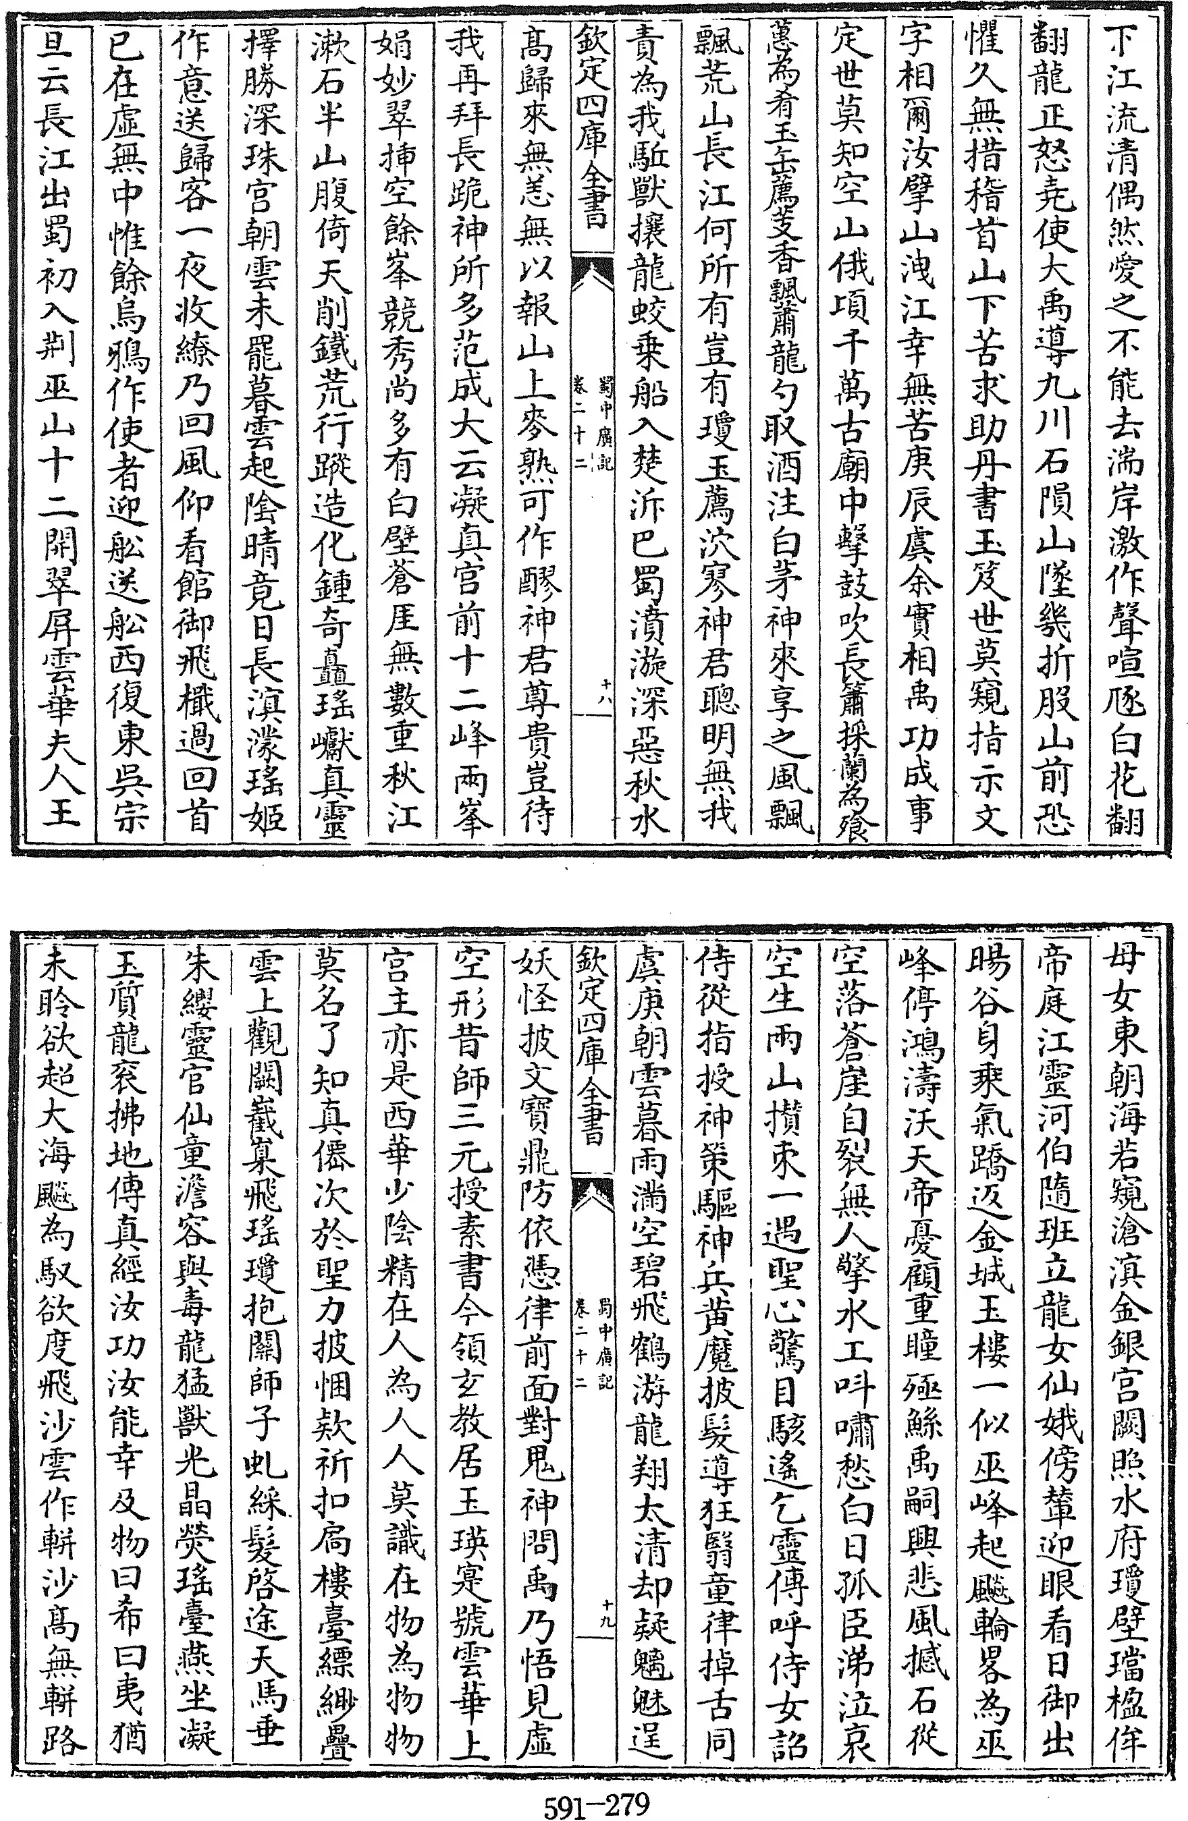 下江流清偶然愛之不能去湍岸激作聲喧豗白花翻
翻龍正怒堯使大禹導九川石隕山墜幾折股山前恐
懼久無措稽首山下苦求助丹書玉笈世莫窺指示文
字相爾汝擘山洩江幸無苦庚辰虞余實相禹功成事
定世莫知空山俄頃千萬古廟中擊鼓吹長簫採蘭為飱
蕙為肴玉缶薦芰香飄蕭龍勺取酒注白茅神來享之風飄
飄荒山長江何所有豈有瓊玉薦泬寥神君聰明無我
責為我駈獸攘龍蛟乗船入楚泝巴蜀濆漩深惡秋水
欽定四庫全書
蜀中廣記
卷二十二
十八
髙歸來無恙無以報山上麥熟可作醪神君尊貴豈待
我再拜長跪神所多范成大云凝真宫前十二峰兩峯
娟妙翠揷空餘峯競秀尚多有白壁蒼厓無數重秋江
漱石半山腹倚天削鐵荒行蹤造化鍾竒矗瑤巘真靈
擇勝深珠宫朝雲未罷暮雲起陰晴竟日長溟濛瑤姬
作意送歸客一夜收繚乃回風仰看館御飛檝過回首
已在虛無中惟餘烏鴉作使者迎舩送舩西復東吳宗
旦云長江出蜀初入荆巫山十二開翠屏雲華夫人王
母女東朝海若窺滄溟金銀宫闕照水府瓊壁璫楹侔
帝庭江靈河伯隨班立龍女仙娥傍輦迎眼看日御出
暘谷身乘氣蹻返金城玉樓一似巫峰起飈輪畧為巫
峰停鴻濤沃天帝憂顧重瞳殛鯀禹嗣興悲風撼石從
空落蒼崖自裂無人擎水工呌嘯愁白日孤臣涕泣哀
空生兩山攢朿一遇聖心驚目駭遙乞靈傳呼侍女詔
侍從指授神策驅神兵黄魔披髮導狂翳童律掉舌同
虞庚朝雲暮雨滿空碧飛鶴游龍翔太清却疑魑魅逞
欽定四庫全書
蜀中廣記
卷二十二
十九
妖怪披文寶鼎防依憑律前面對鬼神問禹乃悟見虛
空形昔師三元授素書今領玄教居玉瑛寔號雲華上
宫主亦是西華少陰精在人為人人莫識在物為物物
莫名了知真僊次於聖力披悃欵祈扣扃樓臺縹緲疊
雲上觀闕嶻嶪飛瑤瓊抱關師子虬綵髮啓途天馬垂
朱纓靈官仙童澹容與毒龍猛獸光晶熒瑤臺燕坐凝
玉質龍衮拂地傳真經汝功汝能幸及物曰希曰夷猶
未聆欲超大海飈為馭欲度飛沙雲作軿沙髙無軿路
591-279